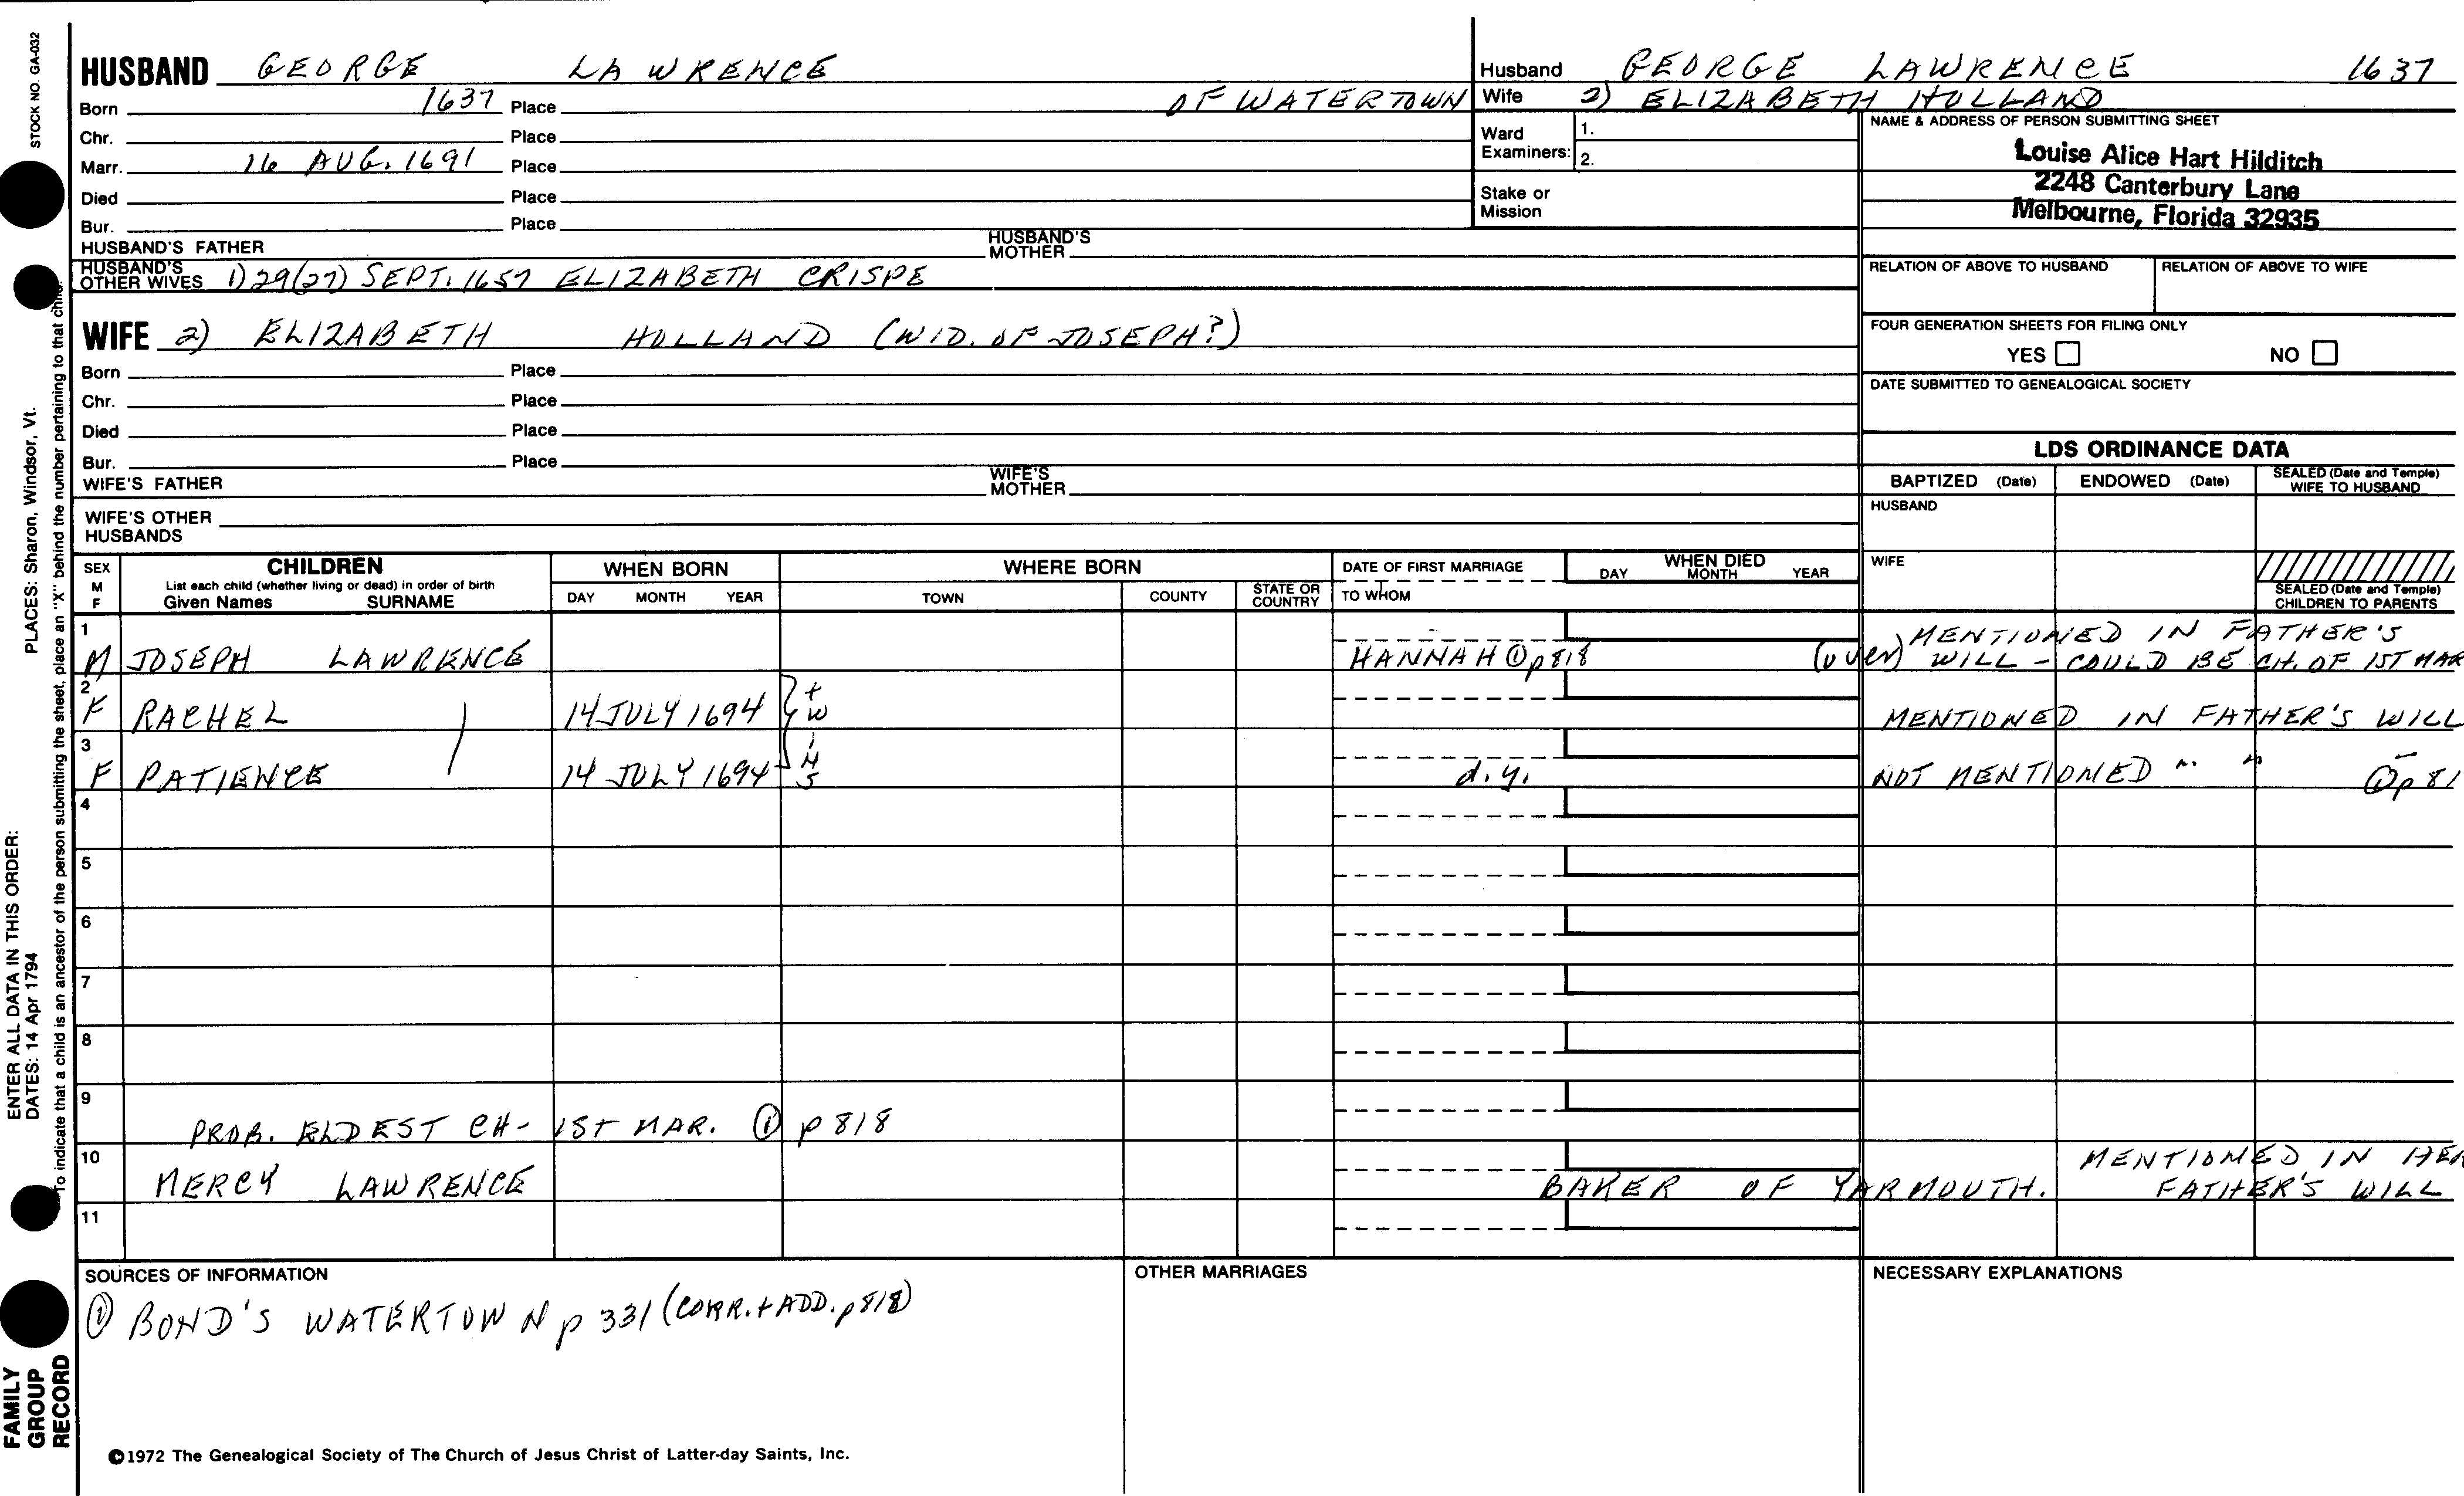 STOCK NO. GA-032
HUSBAND GEORGE LAWRENCE
Born 1637 Place OF WATERTOWN
Chr. Place
Marr. 16 AUG. 1691 Place
Died Place
Bur. Place
HUSBAND'S FATHER HUSBAND'S MOTHER
HUSBAND'S OTHER WIVES 1) 29(27) SEPT. 1657 ELIZABETH CRISPE
WIFE 2) ELIZABETH HOLLAND (WID. OF JOSEPH?)
Born Place
Chr. Place
Died Place
Bur. Place
WIFE'S FATHER WIFE'S MOTHER
WIFE'S OTHER HUSBANDS
Husband GEORGE LAWRENCE 1637
Wife 2) ELIZABETH HOLLAND
Ward Examiners: 1.
2.
Stake or Mission
NAME & ADDRESS OF PERSON SUBMITTING SHEET
Louise Alice Hart Hilditch
2248 Canterbury Lane
Melbourne, Florida 32935
RELATION OF ABOVE TO HUSBAND RELATION OF ABOVE TO WIFE
FOUR GENERATION SHEETS FOR FILING ONLY
YES NO
DATE SUBMITTED TO GENEALOGICAL SOCIETY
LDS ORDINANCE DATA
BAPTIZED (Date) ENDOWED (Date) SEALED (Date and Temple) WIFE TO HUSBAND
HUSBAND
WIFE
SEALED (Date and Temple) CHILDREN TO PARENTS
SEX M F
CHILDREN
List each child (whether living or dead) in order of birth
Given Names SURNAME
WHEN BORN
DAY MONTH YEAR
WHERE BORN
TOWN COUNTY STATE OR COUNTRY
DATE OF FIRST MARRIAGE
TO WHOM
WHEN DIED
DAY MONTH YEAR
1 MENTIONED IN FATHER'S
M JOSEPH LAWRENCE HANNAH ① p 818 (over) WILL - COULD BE CH. OF 1ST MAR
2
F RACHEL 14 JULY 1694 TWINS MENTIONED IN FATHER'S WILL
3
F PATIENCE 14 JULY 1694 d.y. NOT MENTIONED " " ① p 81
4
5
6
7
8
9
PROB. ELDEST CH - 1ST MAR. ① p 818
10 MENTIONED IN HER
MERCY LAWRENCE BAKER OF YARMOUTH. FATHER'S WILL
11
SOURCES OF INFORMATION
① BOND'S WATERTOWN p 331 (CORR. + ADD. p 818)
OTHER MARRIAGES
NECESSARY EXPLANATIONS
©1972 The Genealogical Society of The Church of Jesus Christ of Latter-day Saints, Inc.
PLACES: Sharon, Windsor, Vt.
ENTER ALL DATA IN THIS ORDER:
DATES: 14 Apr 1794
To indicate that a child is an ancestor of the person submitting the sheet, place an "X" behind the number pertaining to that child.
FAMILY GROUP RECORD